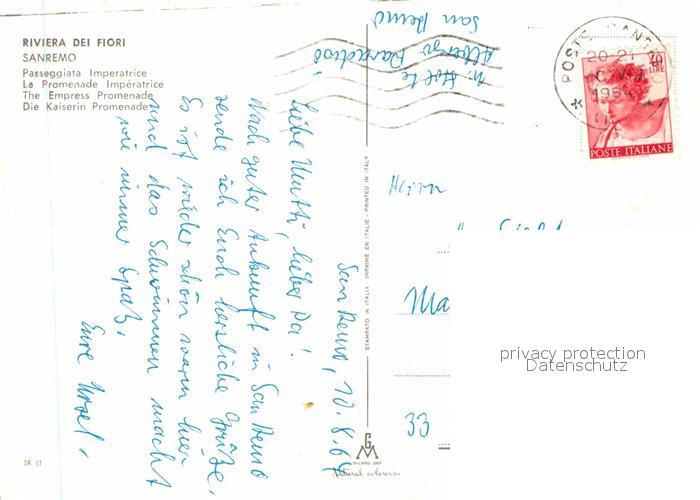 RIVIERA DEI FIORI
SANREMO
Passeggiata Imperatrice
La Promenade Impératrice
The Empress Promenade
Die Kaiserin Promenade
San Remo, 10.8.64
Liebe Mutti, lieber Pa!
Nach guter Ankunft in San Remo
sende ich Euch herzliche Grüße.
Es ist wieder schön warm hier
und das Schwimmen macht
wie immer Spaß.
Eure Ursel.
Albergo Paradiso
San Remo
STAMPATO IN ITALIA - IMPRIMÉ EN ITALIE - PRINTED IN ITALY
POSTE
20-21
1964
LIRE
POSTE ITALIANE
Herrn
Ma
33
privacy protection
Datenschutz
SR 17
GM
MILANO DEP
Natural colours